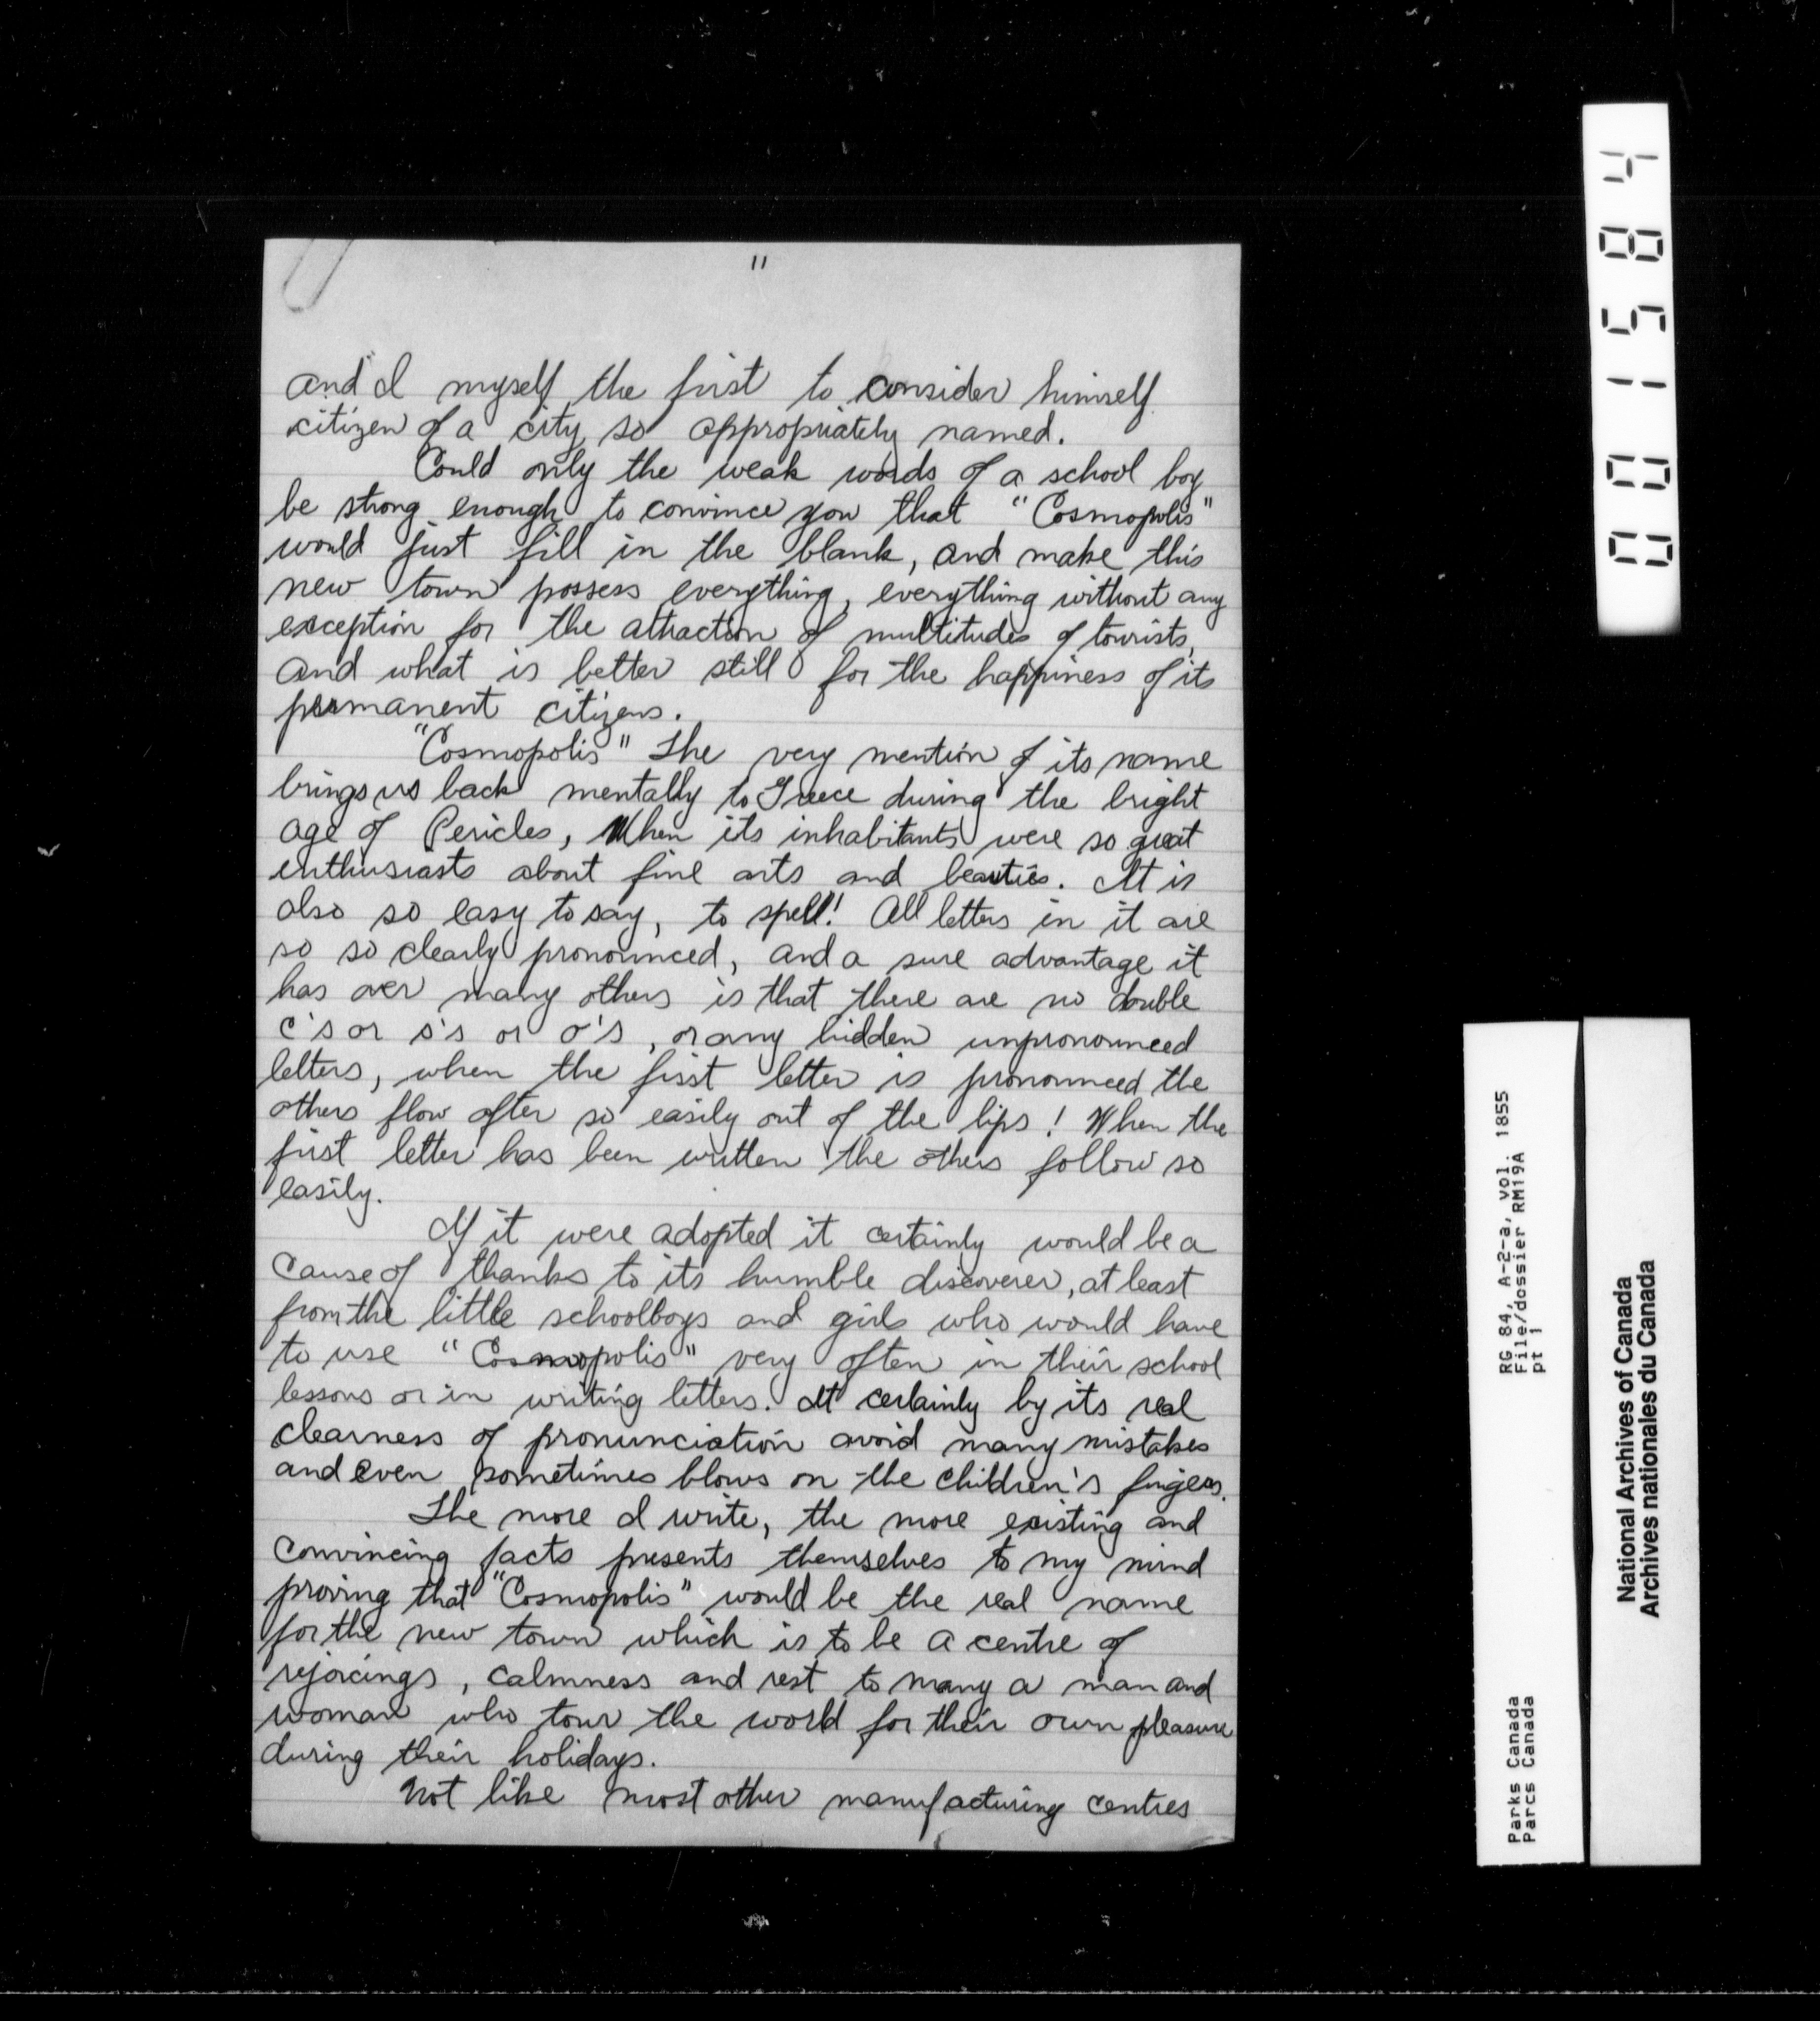 "
and I myself the first to consider himself
citizen of a city so appropriately named.
Could only the weak words of a school boy
be strong enough to convince you that "Cosmopolis"
would just fill in the blank, and make this
new town possess everything, everything without any
exception for the attraction of multitudes of tourists,
and what is better still for the happiness of its
permanent citizens.
"Cosmopolis" The very mention of its name
brings us back mentally to Greece during the bright
age of Pericles, When its inhabitants were so great
enthusiasts about fine arts and beauties. It is
also so easy to say, to spell! All letters in it are
so so clearly pronounced, and a sure advantage it
has over many others is that there are no double
c's or s's or o's, or any hidden unpronounced
letters, when the first letter is pronounced the
others flow after so easily out of the lips! When the
first letter has been written the others follow so
easily.
If it were adopted it certainly would be a
cause of thanks to its humble discoverer, at least
from the little schoolboys and girls who would have
to use "Cosmopolis" very often in their school
lessons or in writing letters. It certainly by its real
clearness of pronunciation avoid many mistakes
and even sometimes blows on the children's fingers.
The more I write, the more existing and
convincing facts presents themselves to my mind
proving that "Cosmopolis" would be the real name
for the new town which is to be a centre of
rejoicings, calmness and rest to many a man and
woman who tour the world for their own pleasure
during their holidays.
Not like most other manufacturing centres
001584
Parks Canada RG 84, A-2-a, vol. 1855
Parcs Canada File/dossier RM19A
pt 1
National Archives of Canada
Archives nationales du Canada